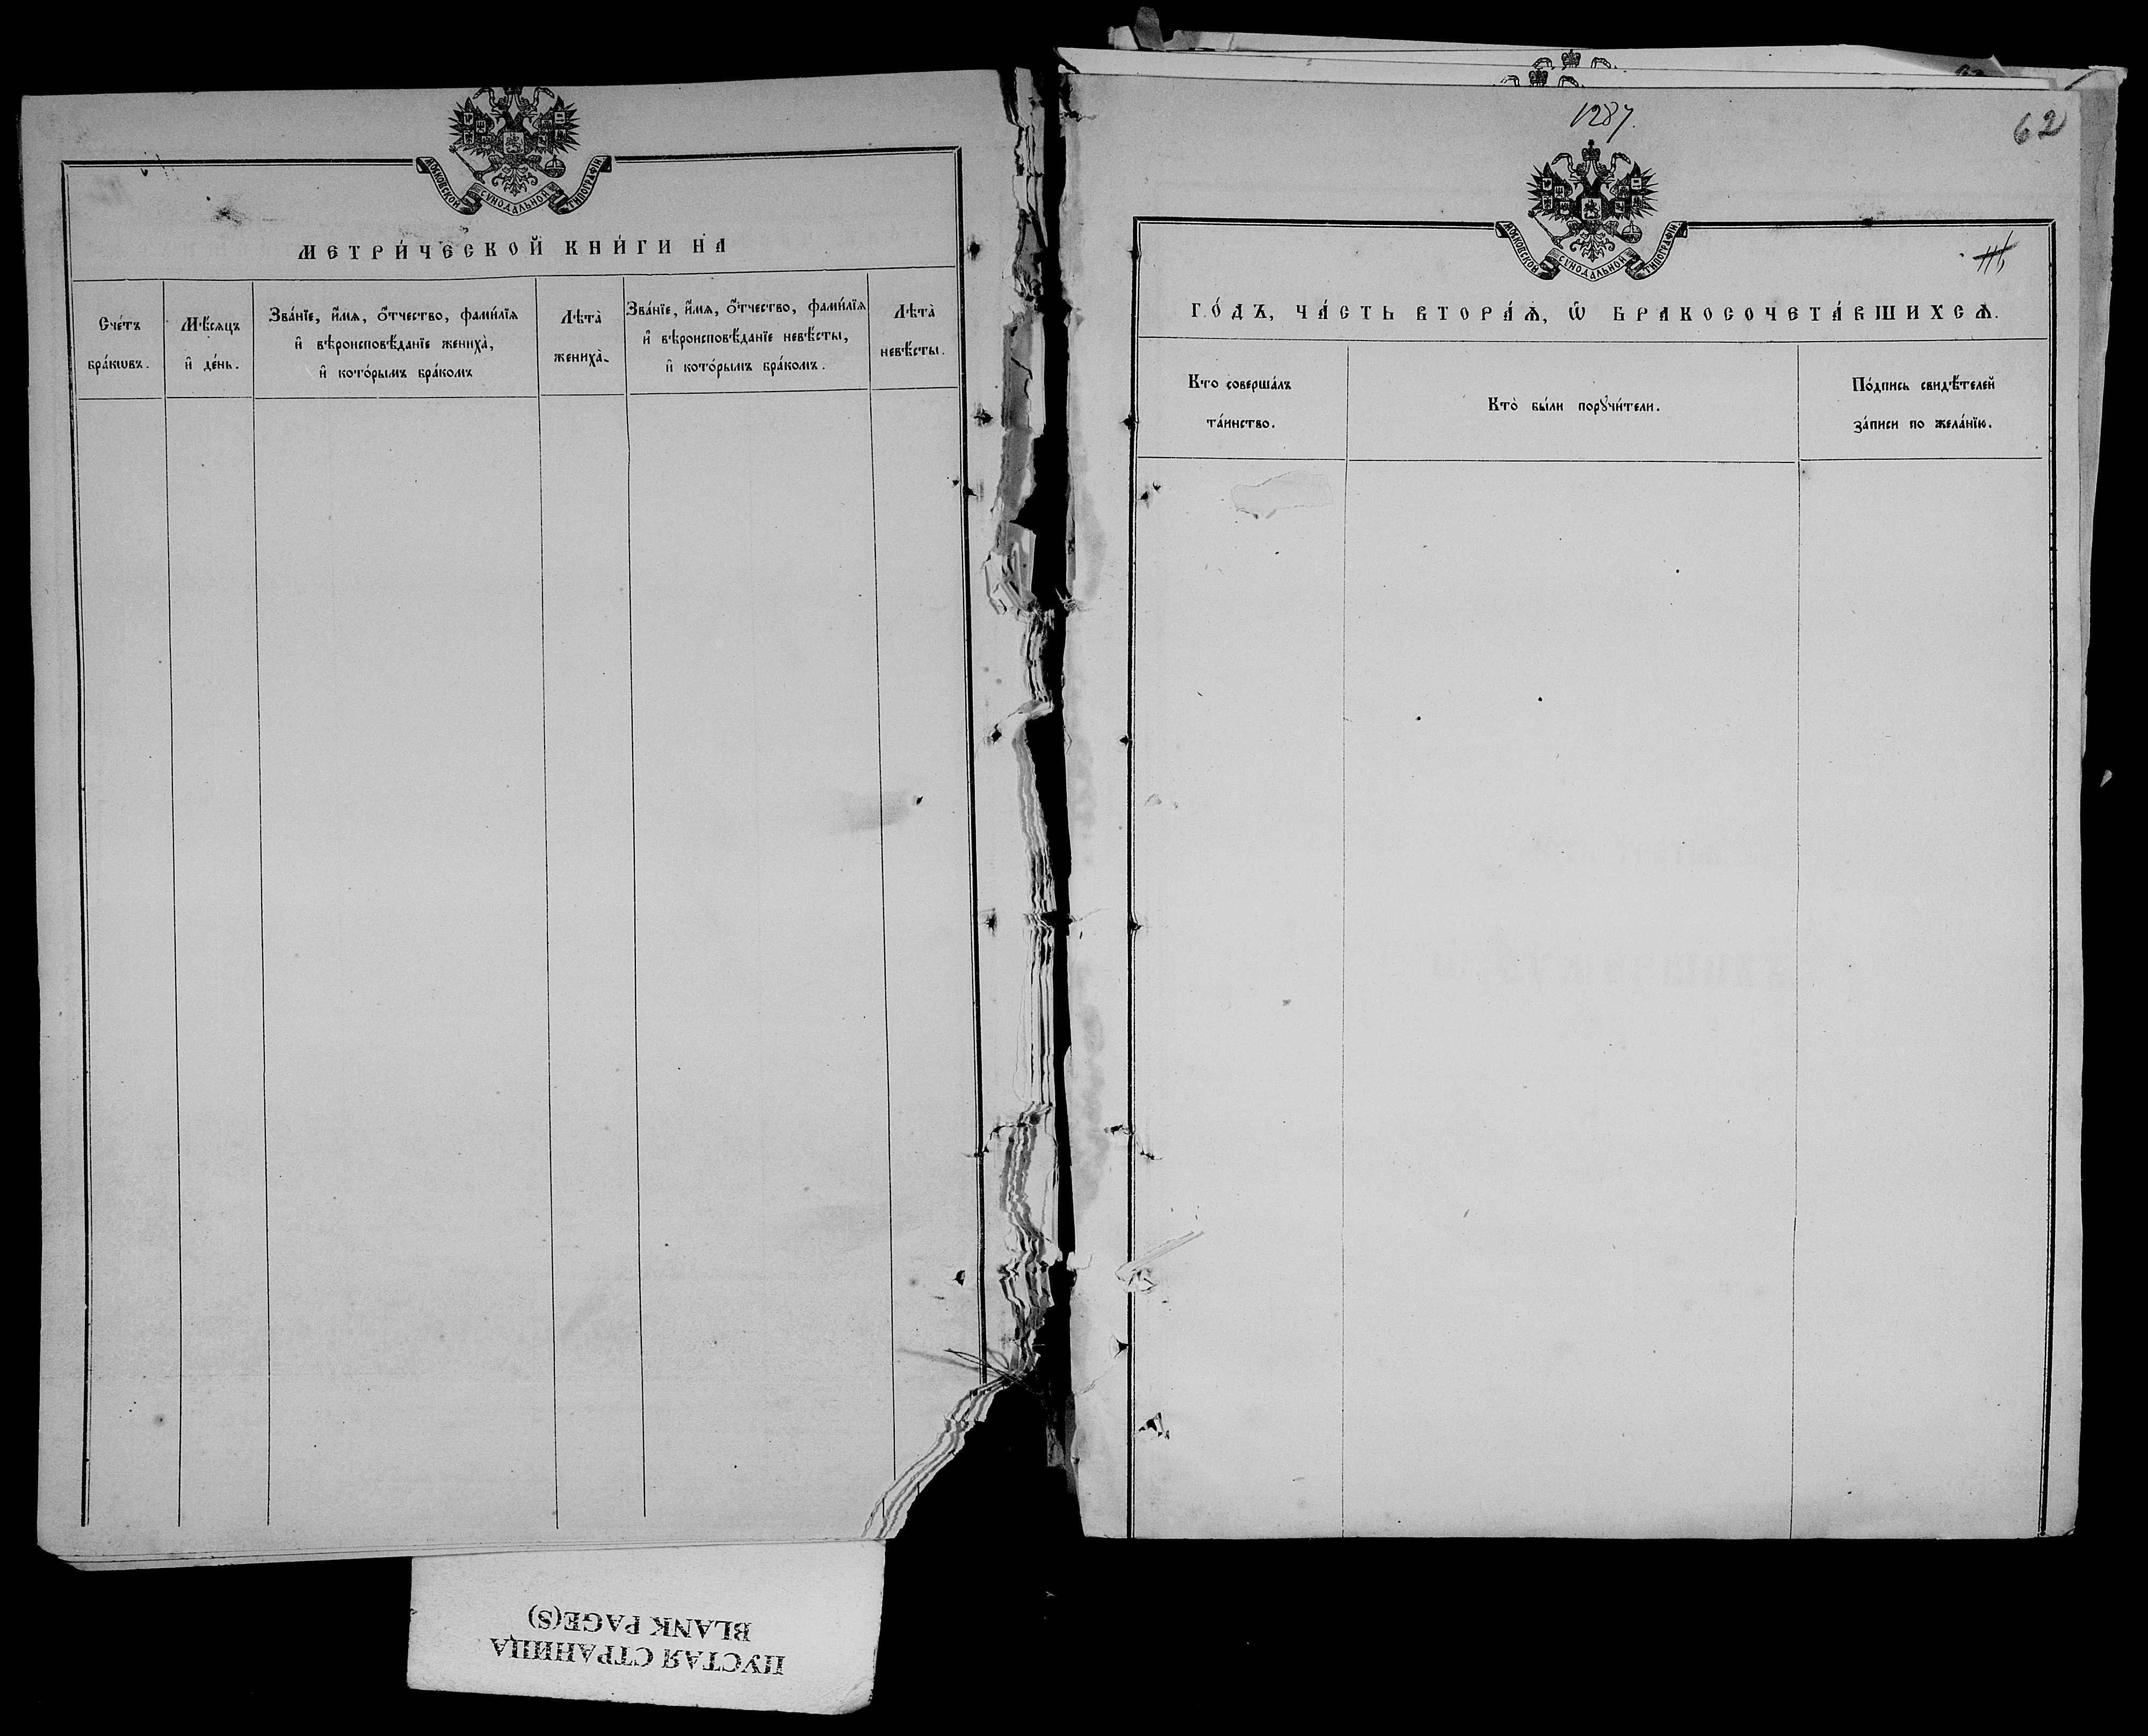 МОСКОВСКОЙ СѴНОДАЛЬНОЙ ТИПОГРАФІИ
МЕТРИ́ЧЕСКОЙ КНИ́ГИ НА
Сче́тъ
бра́кѡвъ.
Мѣ́сяцъ
и҆ де́нь.
Зва́нїе, и҆́мя, ѻ҆́тчество, фами́лїя
и҆ вѣроисповѣ́данїе жениха̀,
и҆ кото́рымъ бра́комъ
Лѣта̀
жениха̀.
Зва́нїе, и҆́мя, ѻ҆́тчество, фами́лїя
и҆ вѣроисповѣ́данїе невѣ́сты,
и҆ кото́рымъ бра́комъ.
Лѣта̀
невѣ́сты.
1287.
62
МОСКОВСКОЙ СѴНОДАЛЬНОЙ ТИПОГРАФІИ
ГО́ДЪ, ЧА́СТЬ ВТОРА́Ѧ, Ѡ҆ БРАКОСОЧЕТА́ВШИХСѦ.
Кто соверша́лъ
та́инство.
Кто̀ бы́ли порꙋчи́тели.
По́дпись свидѣ́телей
за́писи по жела́нїю.
ПУСТАЯ СТРАНИЦА
BLANK PAGE(S)